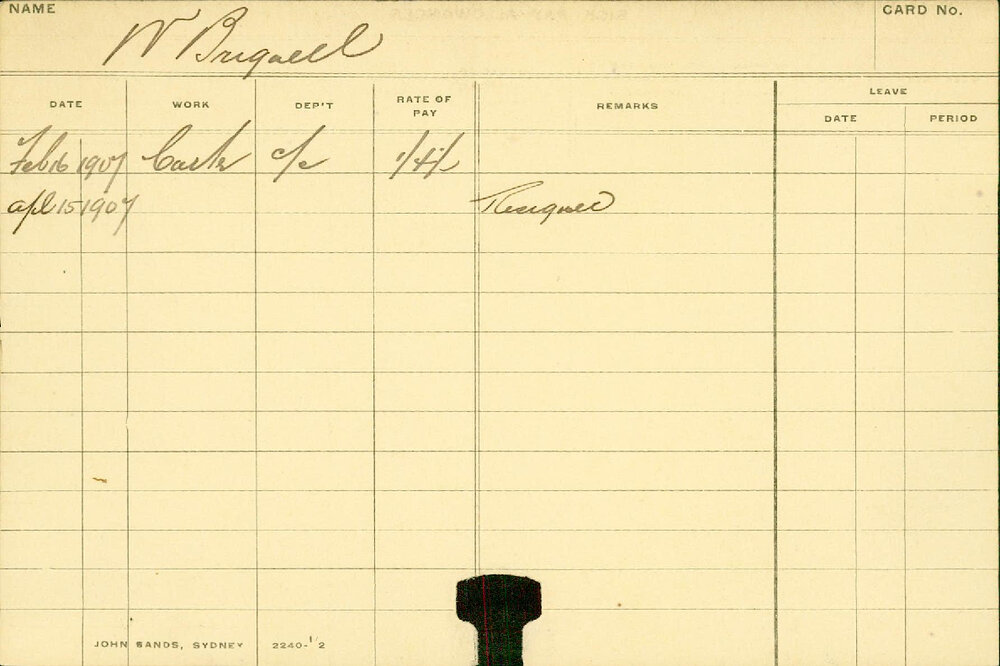 NAME W Brignell CARD No.
DATE WORK DEP'T RATE OF PAY REMARKS LEAVE
DATE PERIOD
Feb 16 1907 Carter c/c
Apl 15 1907 Resigned
JOHN SANDS, SYDNEY 2240-1/2